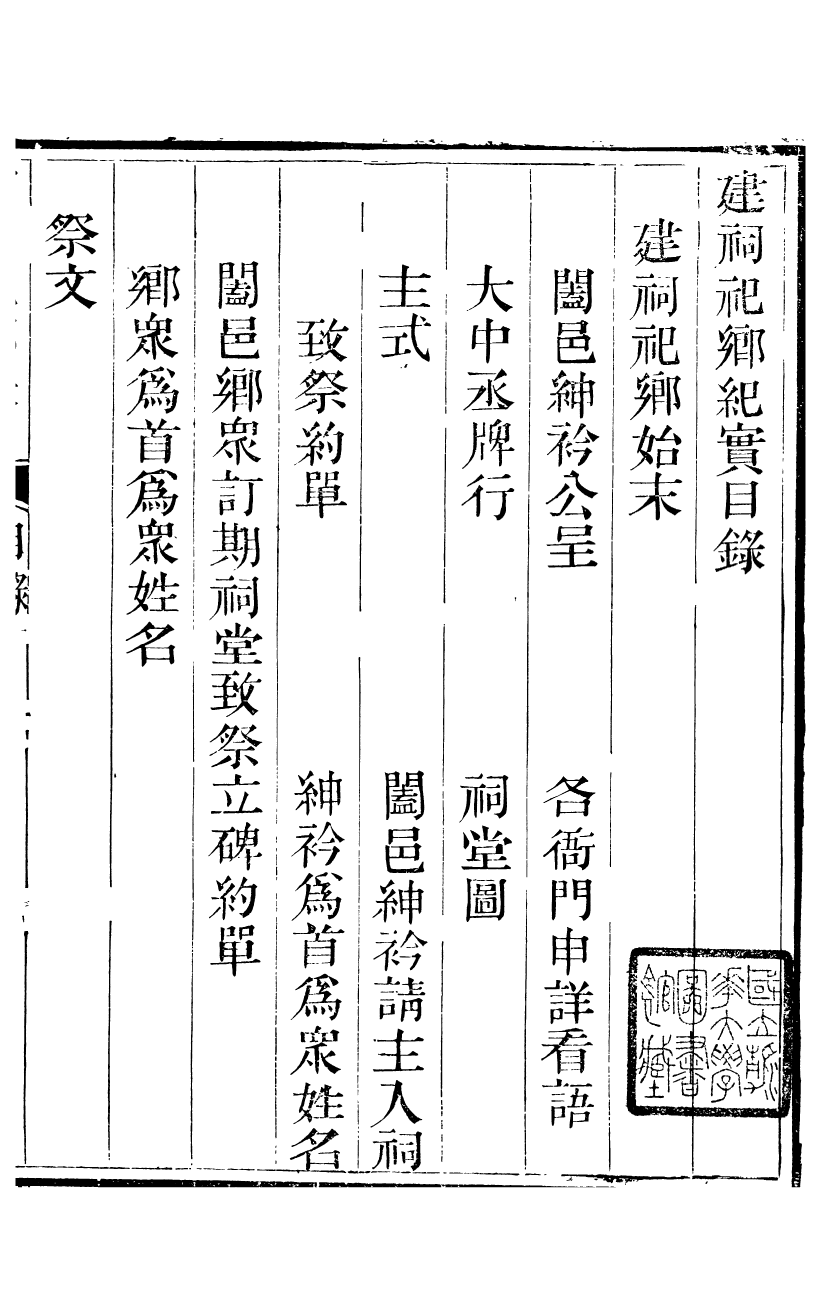 建祠祀鄉紀實目錄
建祠祀鄉始末
闔邑紳衿公呈　各衙門申詳看語
大中丞牌行　祠堂圖
主式　闔邑紳衿請主人祠
致祭約單　紳衿爲首爲衆姓名
闔邑鄉衆訂期祠堂致祭立碑約單
鄉衆爲首爲衆姓名
祭文
目錄
國立清華大學圖書館藏